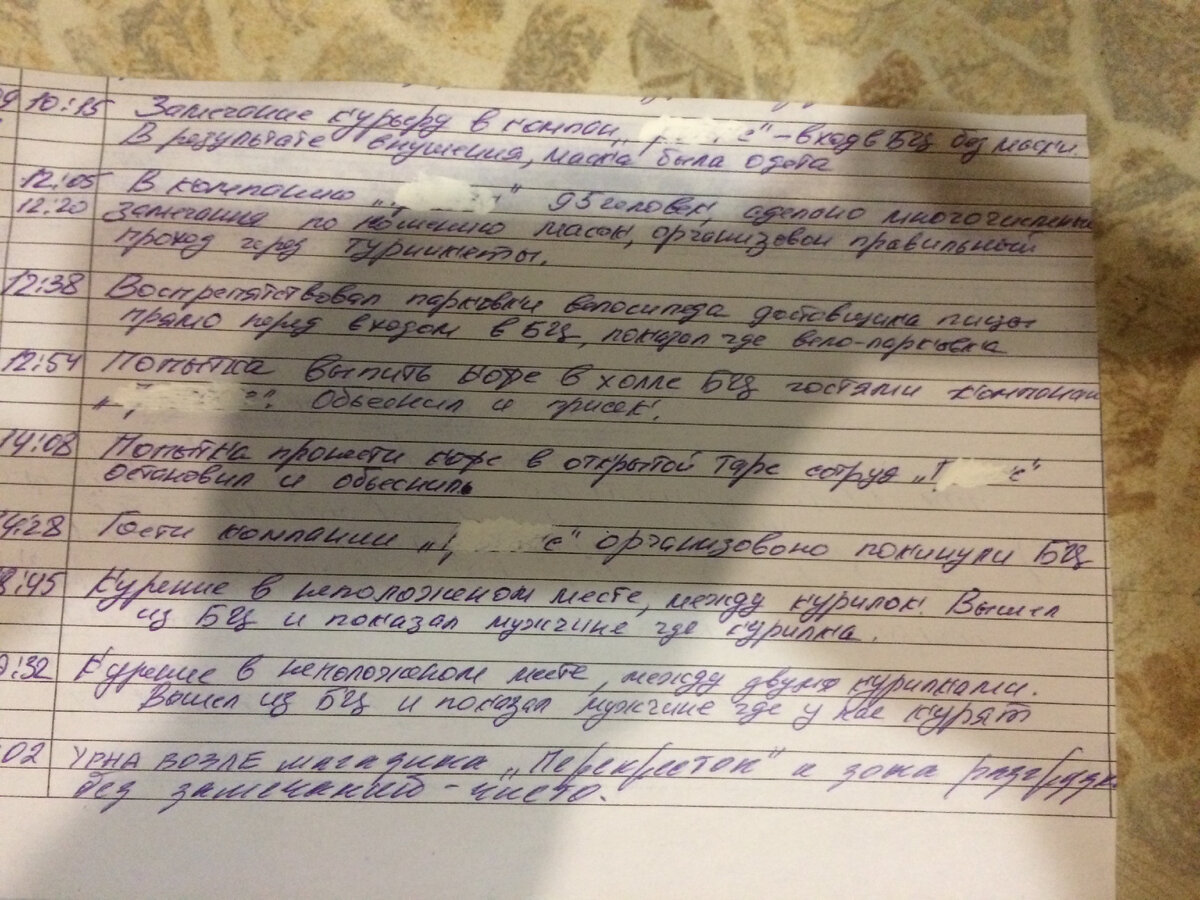 10:15 Замечание курьеру в компан, „ е" - вход в БЦ без маски.
В результате внушения, маска была одета
12:05 В компанию „ " 95 человек, сделано многочисленные
12:20 замечания по ношению масок, организован правильный
проход через турникеты.
12:38 Воспрепятствовал парковки велосипеда доставщика пиццы
прямо перед входом в БЦ, показал где вело-парковка
12:54 Попытка выпить кофе в холле БЦ гостями компании
„ ". Обьеснил и присек.
14:08 Попытка пронести кофе в открытой таре сотруд „ с"
остановил и обьеснил
4:28 Гости компании „ с" организовано покинули БЦ
:45 Курение в неположеном месте, между курилок. Вышел
из БЦ и показал мужчине где курилка.
:32 Курение в неположеном месте, между двумя курилками.
Вышел из БЦ и показал мужчине где у нас курят
:02 УРНА ВОЗЛЕ магазина „Перекресток" и зона
без замечаний - чисто.